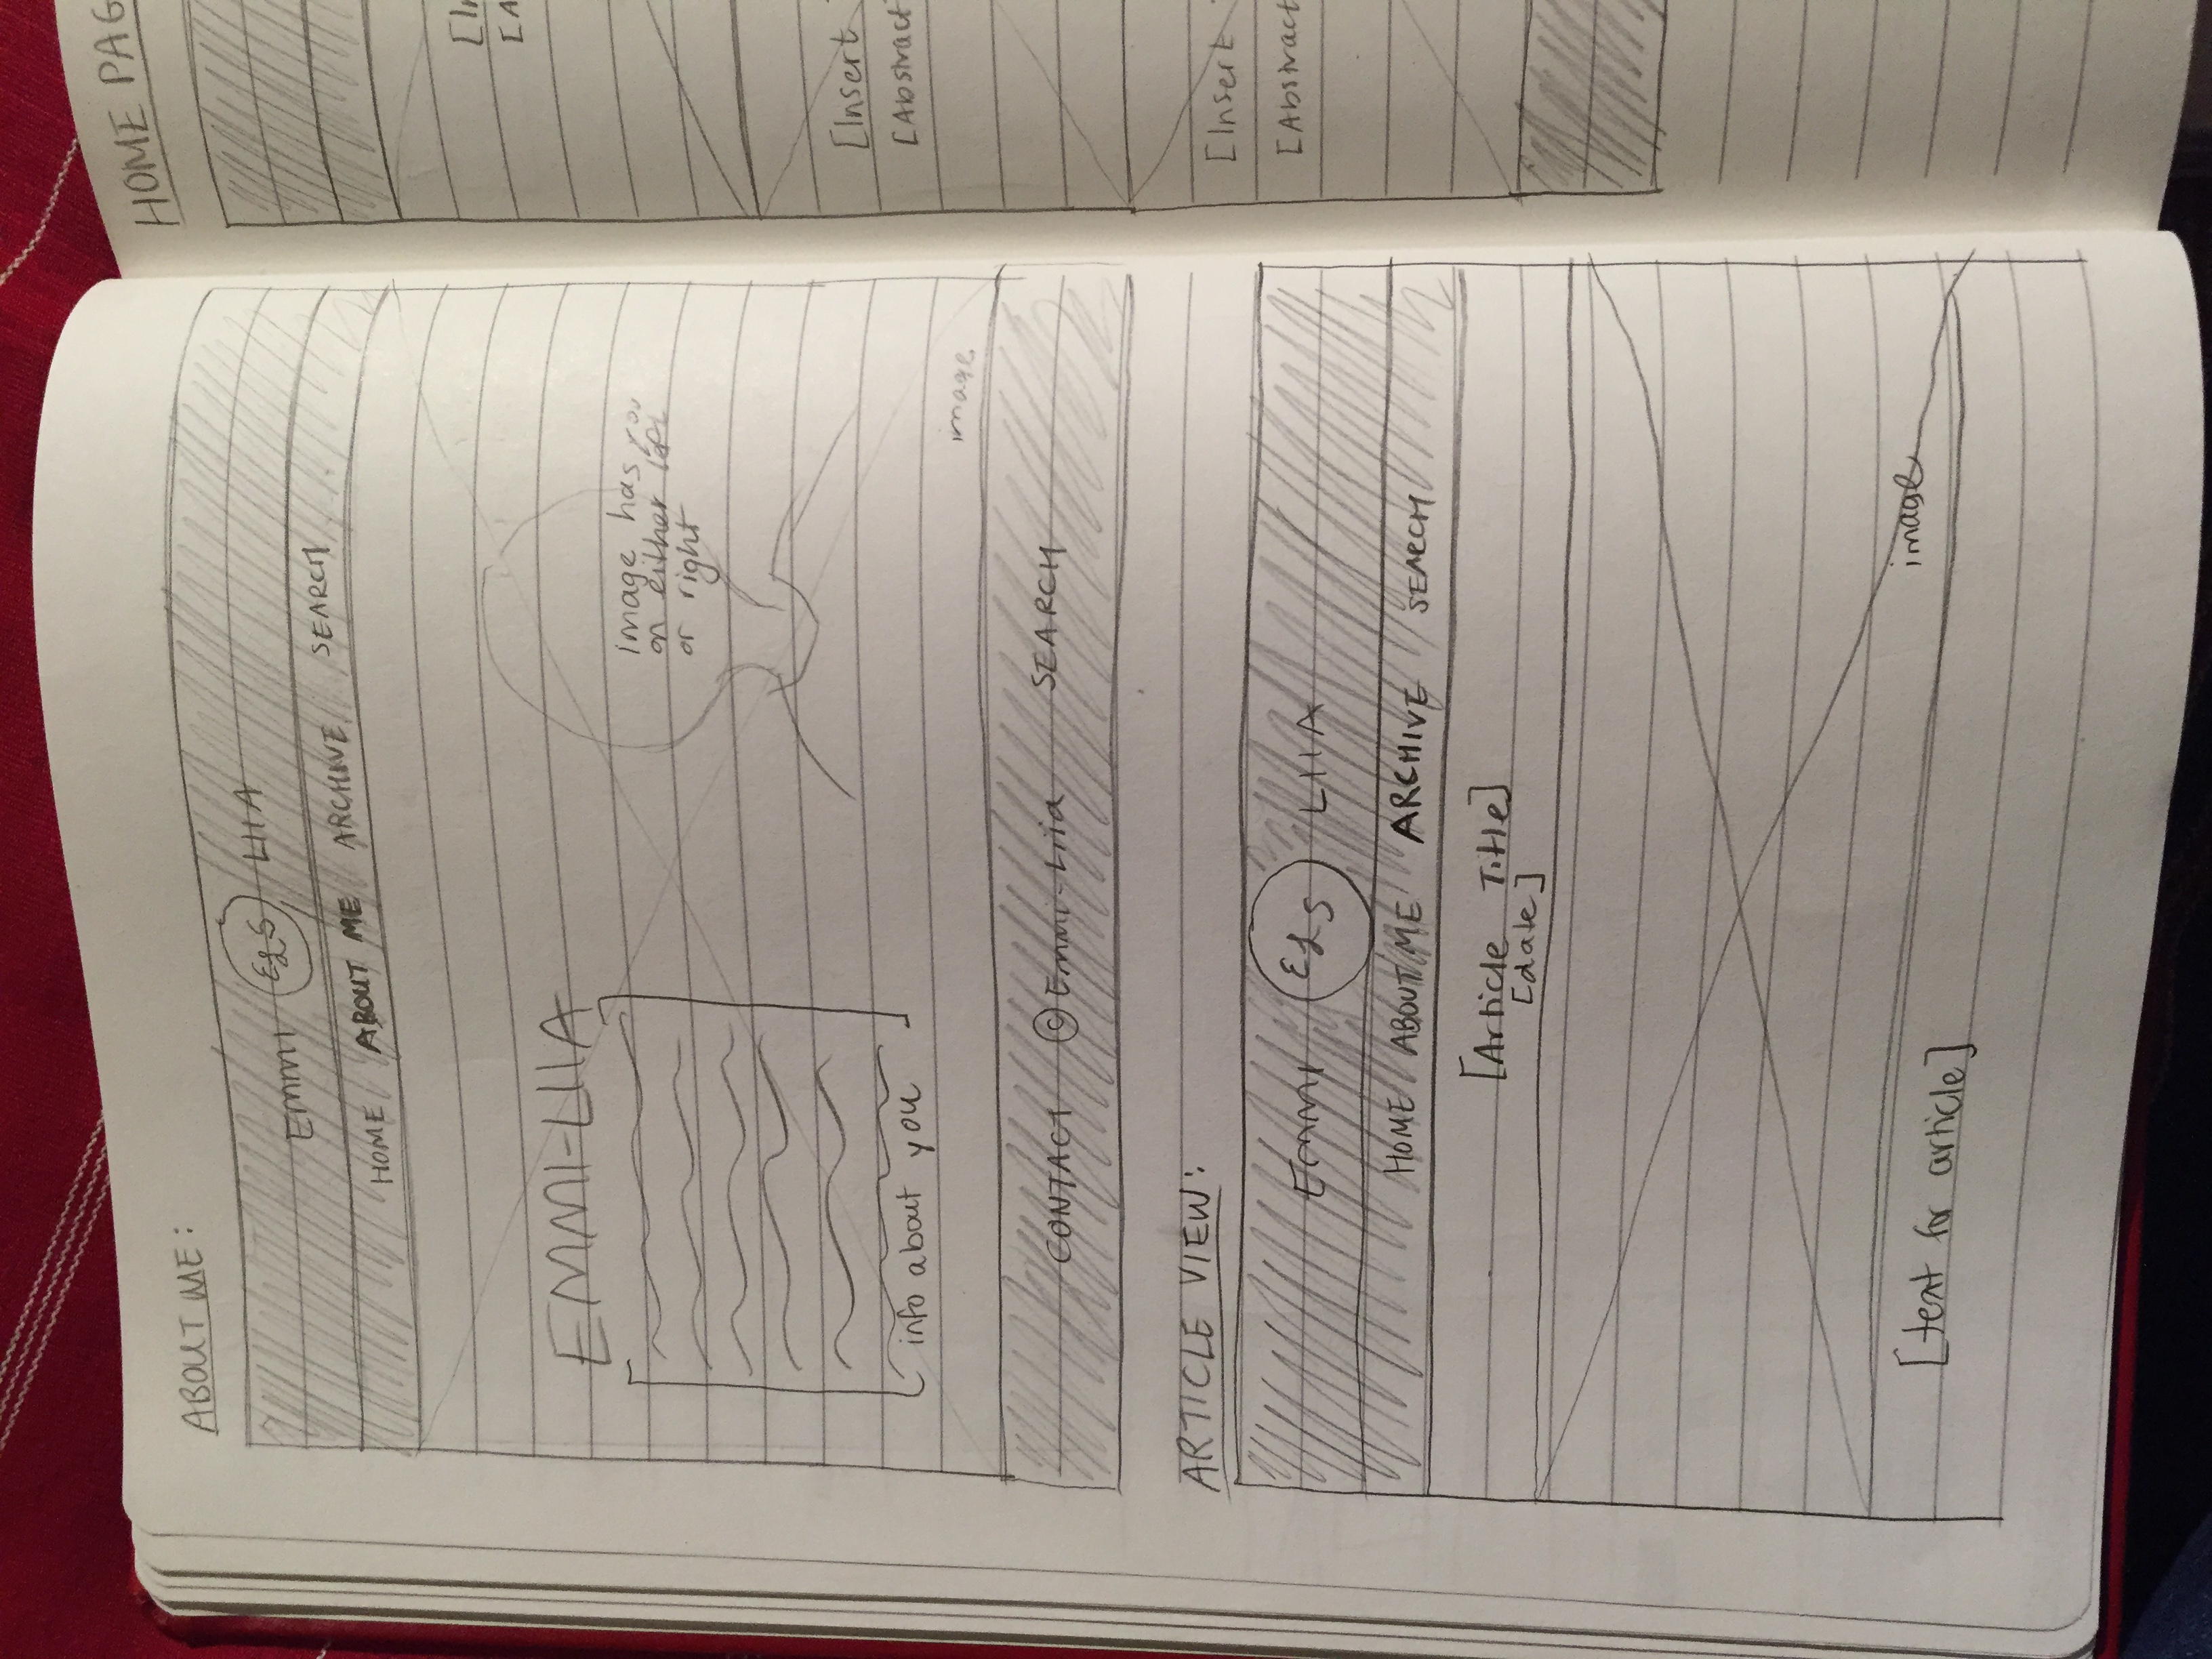 ABOUT ME:
EMMI ELS LIIA
HOME ABOUT ME ARCHIVE SEARCH
EMMI-LIIA
Image has you
on either left
or right
info about you
image
CONTACT © Emmi-Liia SEARCH
ARTICLE VIEW:
EMMI ELS LIIA
HOME ABOUT ME ARCHIVE SEARCH
[Article Title]
[date]
image
[text for article]
HOME PAG
[In
[A
[Insert
[Abstract
[Insert
[Abstract